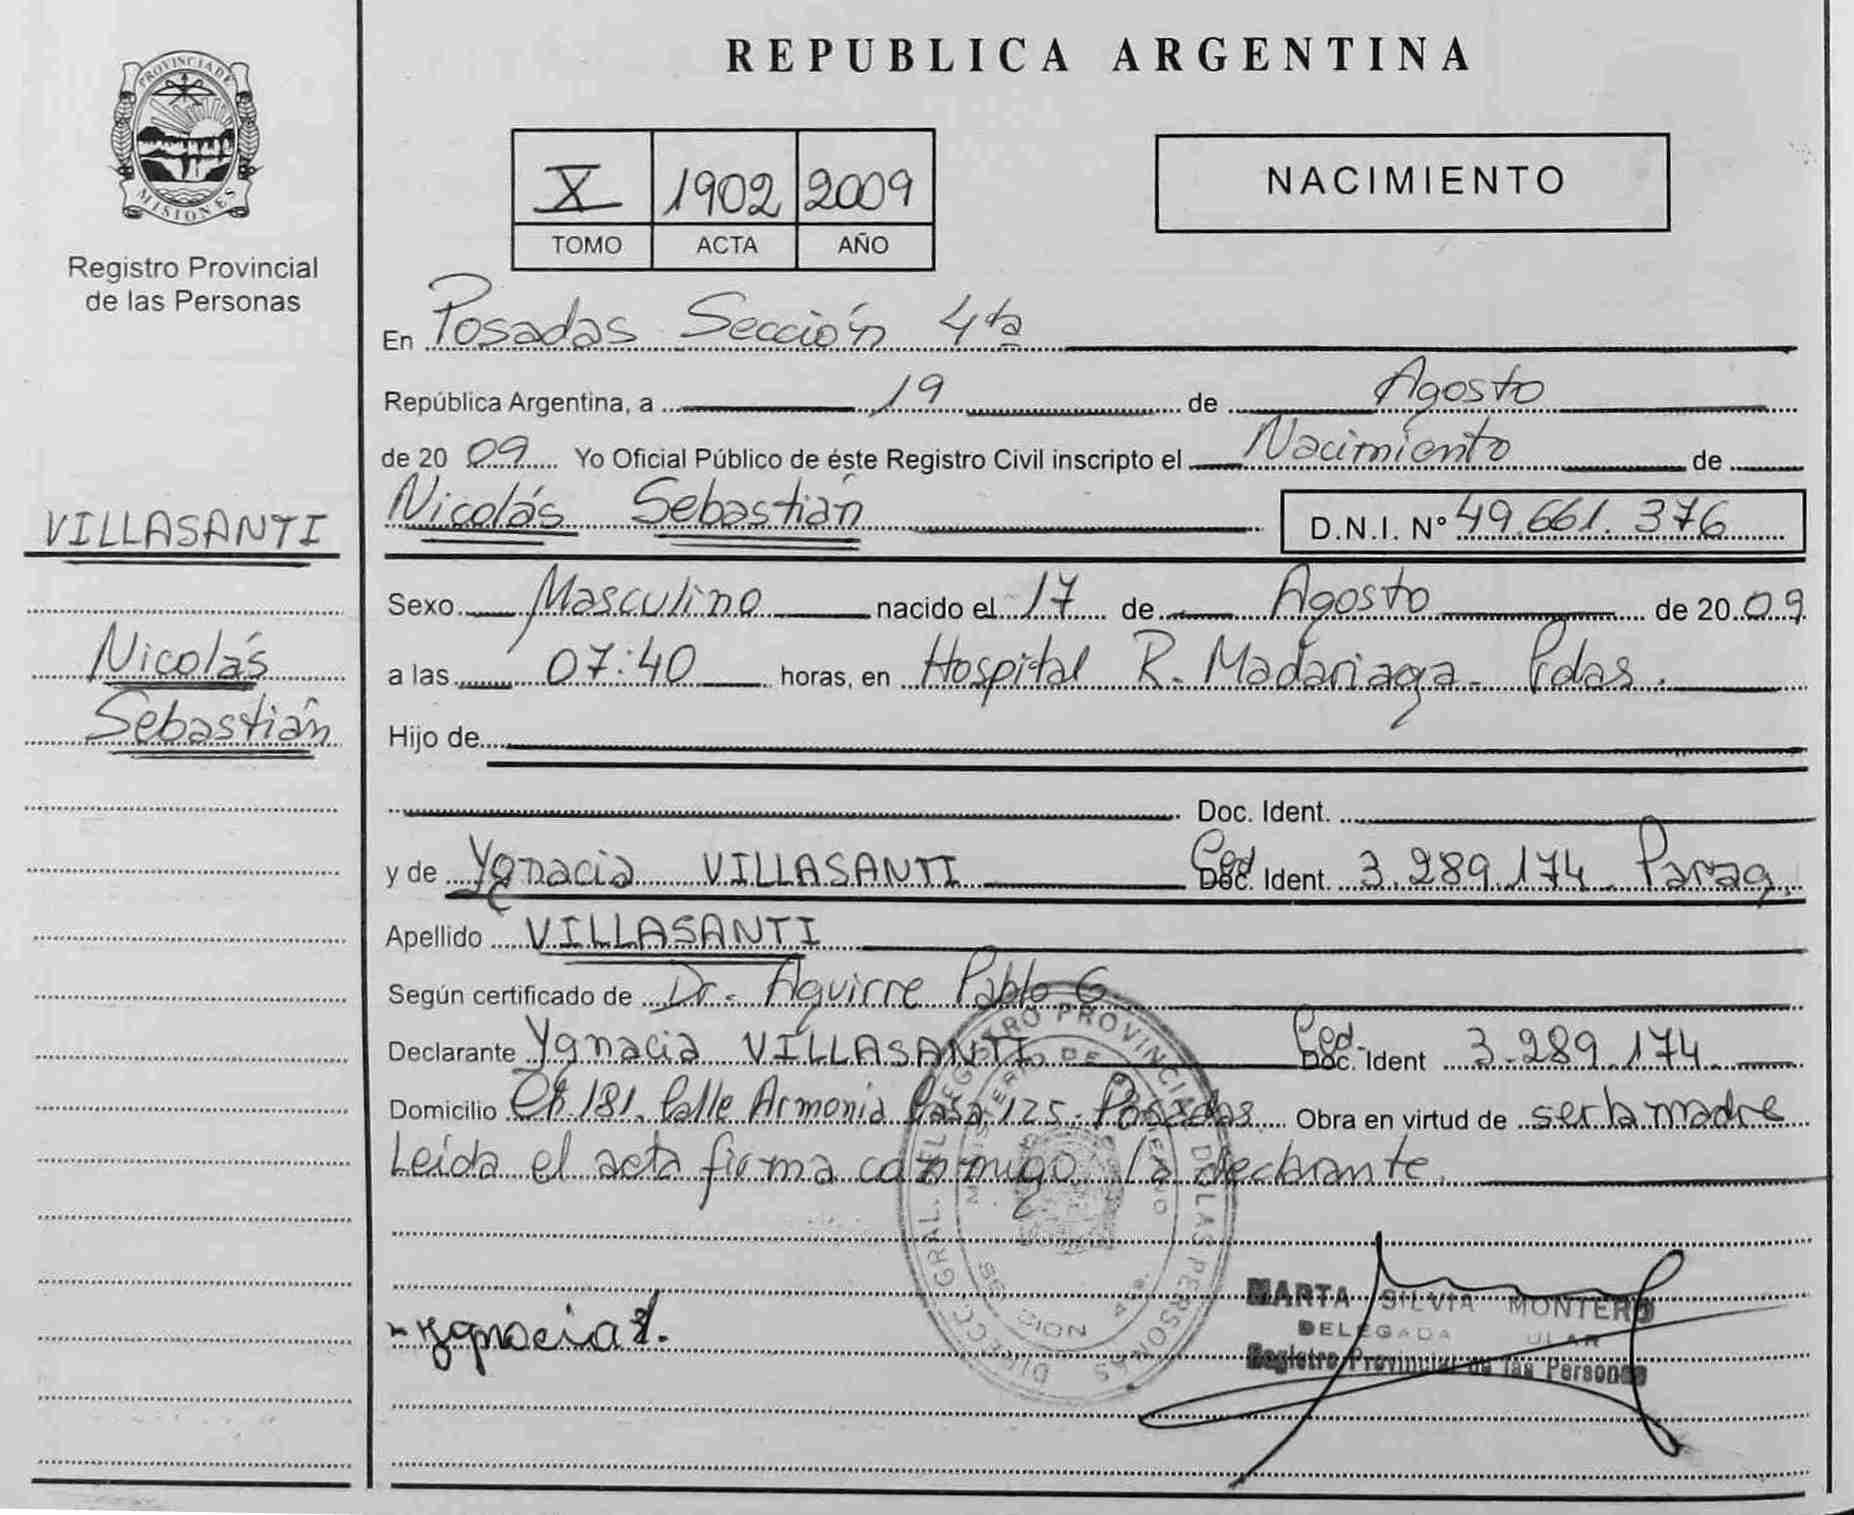 PROVINCIA DE
MISIONES
Registro Provincial
de las Personas
VILLASANTI
Nicolás
Sebastián
REPUBLICA ARGENTINA
X 1902 2009
TOMO ACTA AÑO
NACIMIENTO
En Posadas Sección 4ta
República Argentina, a 19 de Agosto
de 20 09 Yo Oficial Público de éste Registro Civil inscripto el Nacimiento de
Nicolás Sebastián D.N.I. Nº 49.661.376
Sexo Masculino nacido el 17 de Agosto de 20 09
a las 07:40 horas, en Hospital R. Madariaga - Pdas.
Hijo de
Doc. Ident.
y de Ygnacia VILLASANTI Ced. Doc. Ident. 3.289.174 Parag.
Apellido VILLASANTI
Según certificado de Dr. Aguirre Pablo G.
Declarante Ygnacia VILLASANTI Ced. Doc. Ident 3.289.174
Domicilio Ch. 181. Calle Armonia Casa 125 - Posadas. Obra en virtud de ser la madre
Leída el acta firma conmigo la declarante.
DIRECC. GRAL. DEL REGISTRO PROVINCIAL DE LAS PERSONAS
MINISTERIO DE GOBIERNO
- Ygnacia V.
MARTA SILVIA MONTERO
DELEGADA
Registro Provincial de las Personas